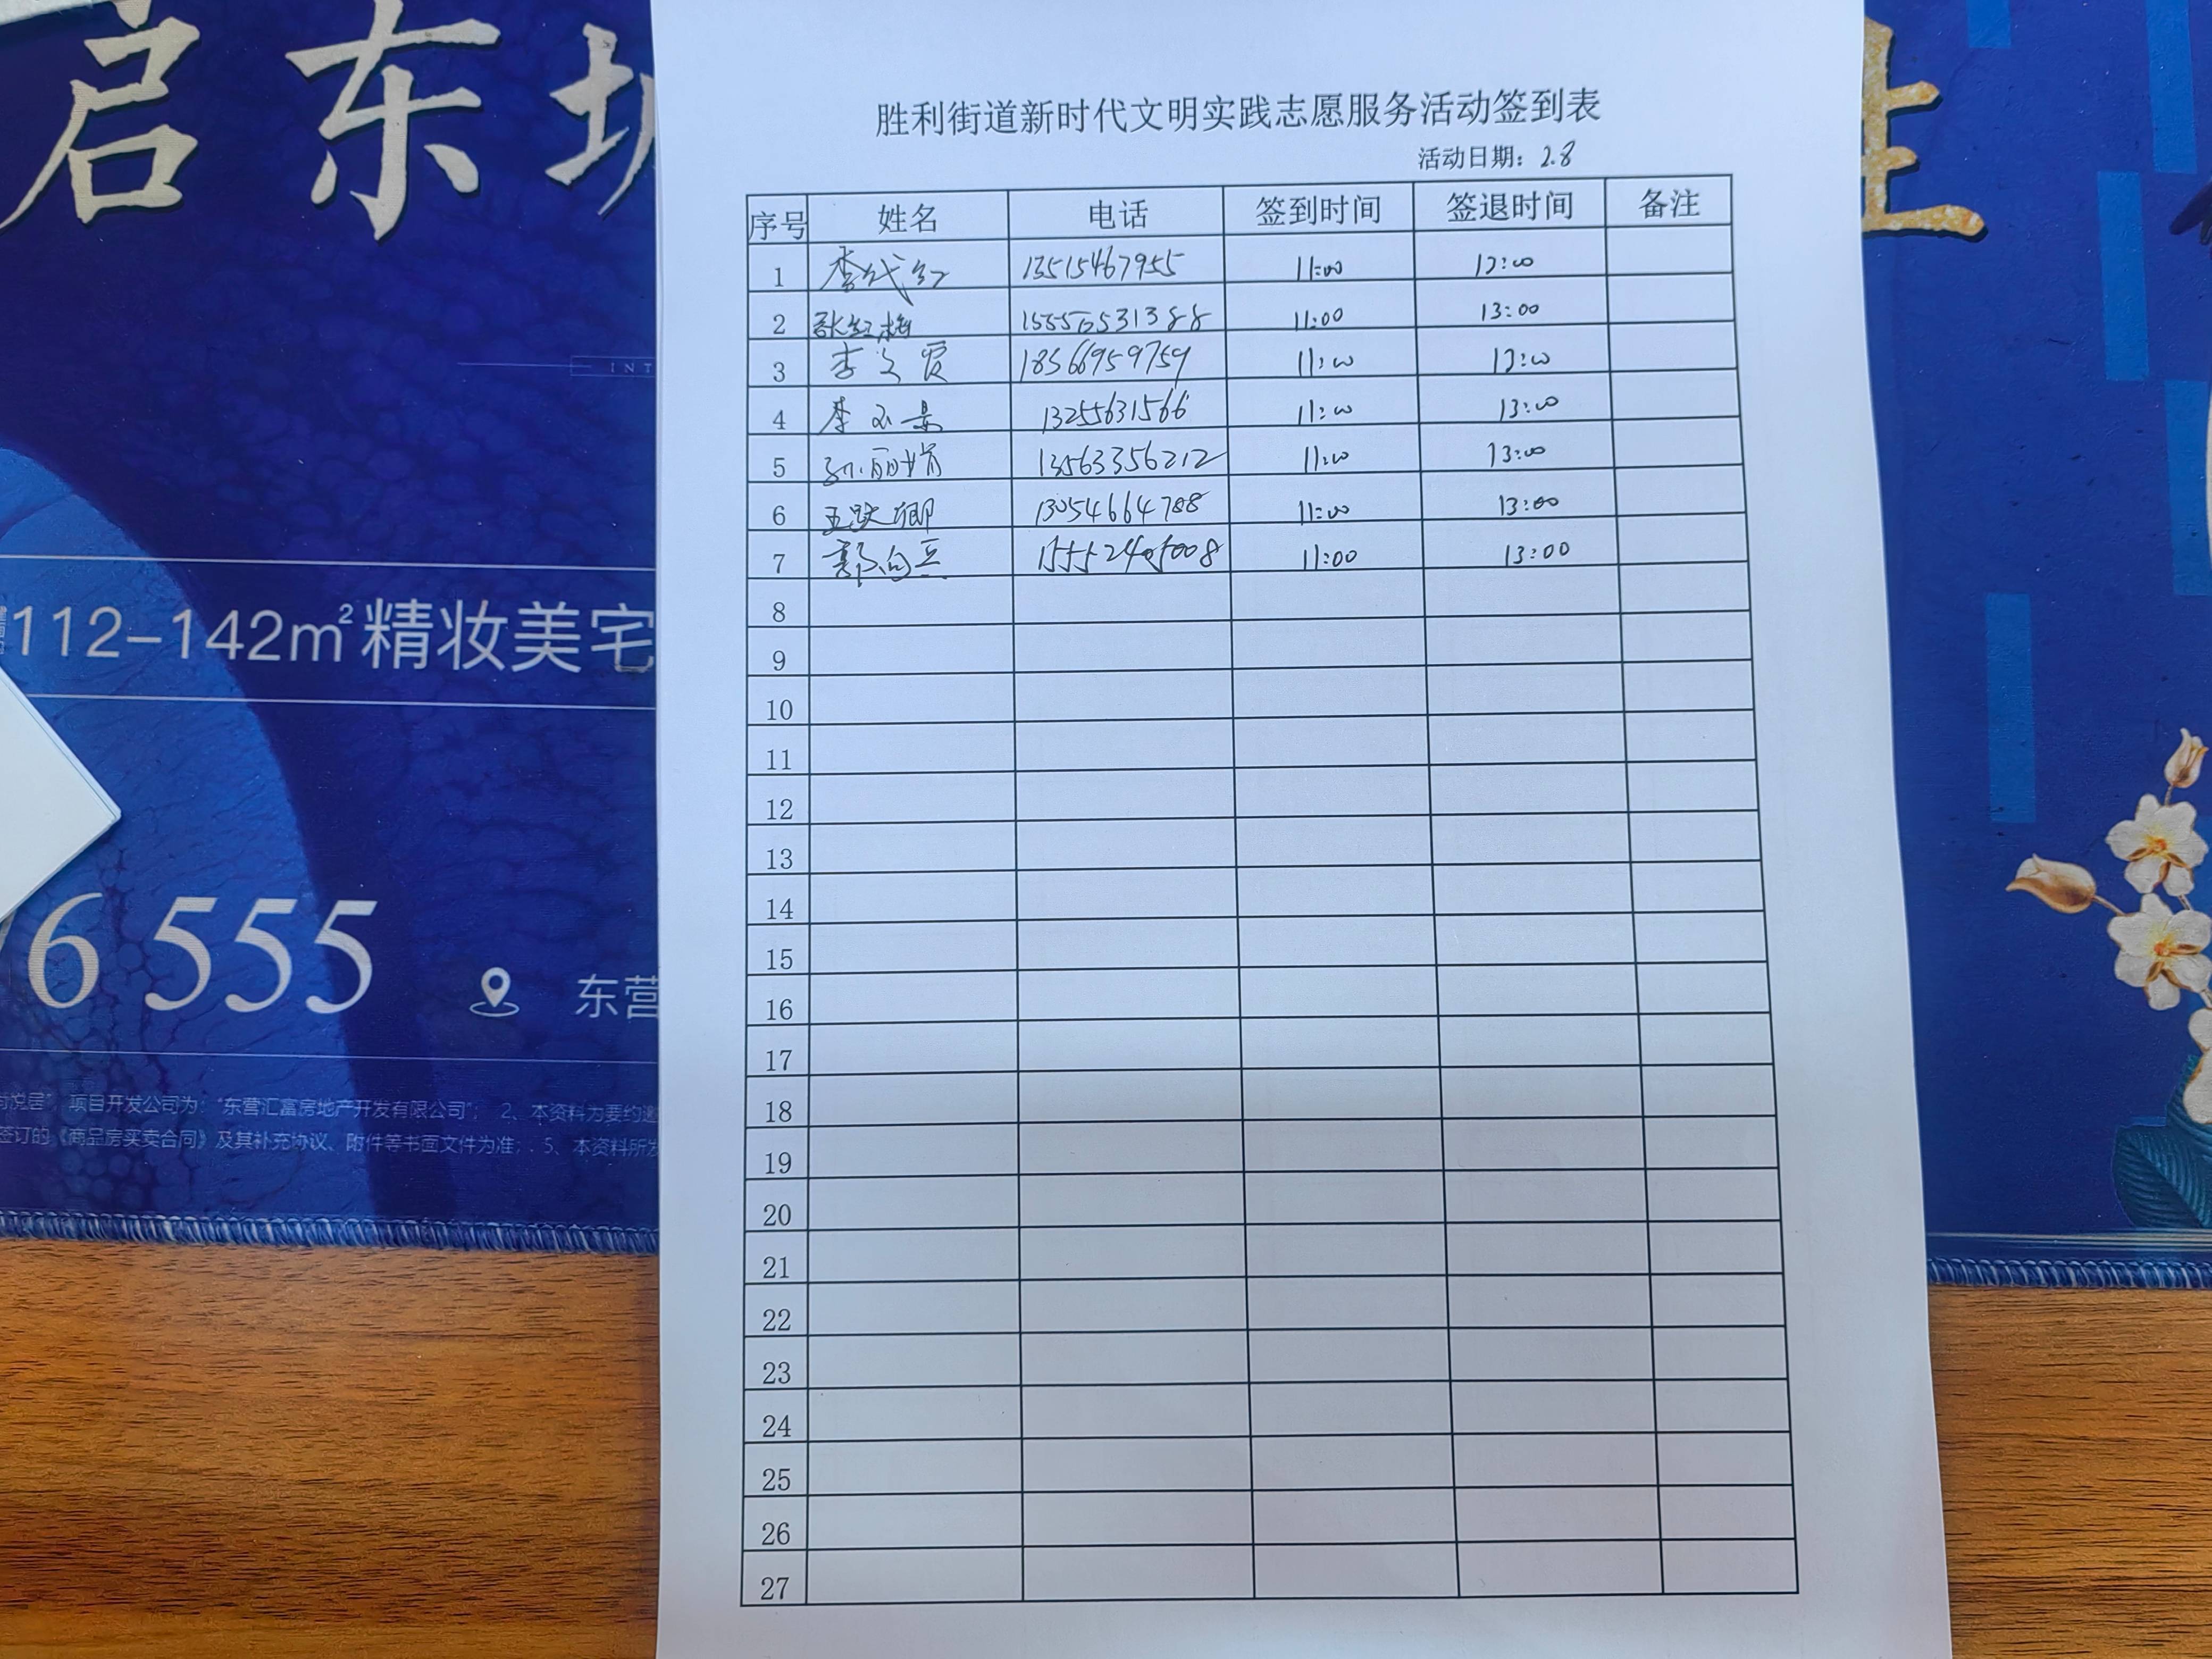 启东城
INT
112-142m²精妆美宅
6 555
东营
项目开发公司为："东营汇富房地产开发有限公司"； 2、本资料为要约邀
签订的《商品房买卖合同》及其补充协议、附件等书面文件为准；. 5、本资料所
胜利街道新时代文明实践志愿服务活动签到表
活动日期：2.8
序号 姓名 电话 签到时间 签退时间 备注
1 李代红 13515467955 11:00 13:00
2 张红梅 11:00 13:00
3 李文霞 18366959759 11:00 13:00
4 李玉景 13255631566 11:00 13:00
5 孙丽娟 13563356212 11:00 13:00
6 王跃卿 13054664788 11:00 13:00
7 郭向兵 11:00 13:00
8
9
10
11
12
13
14
15
16
17
18
19
20
21
22
23
24
25
26
27